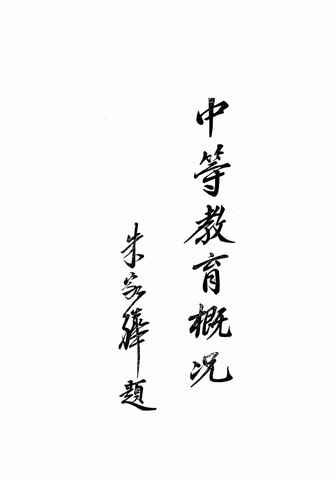 中等教育概况
朱家驊題